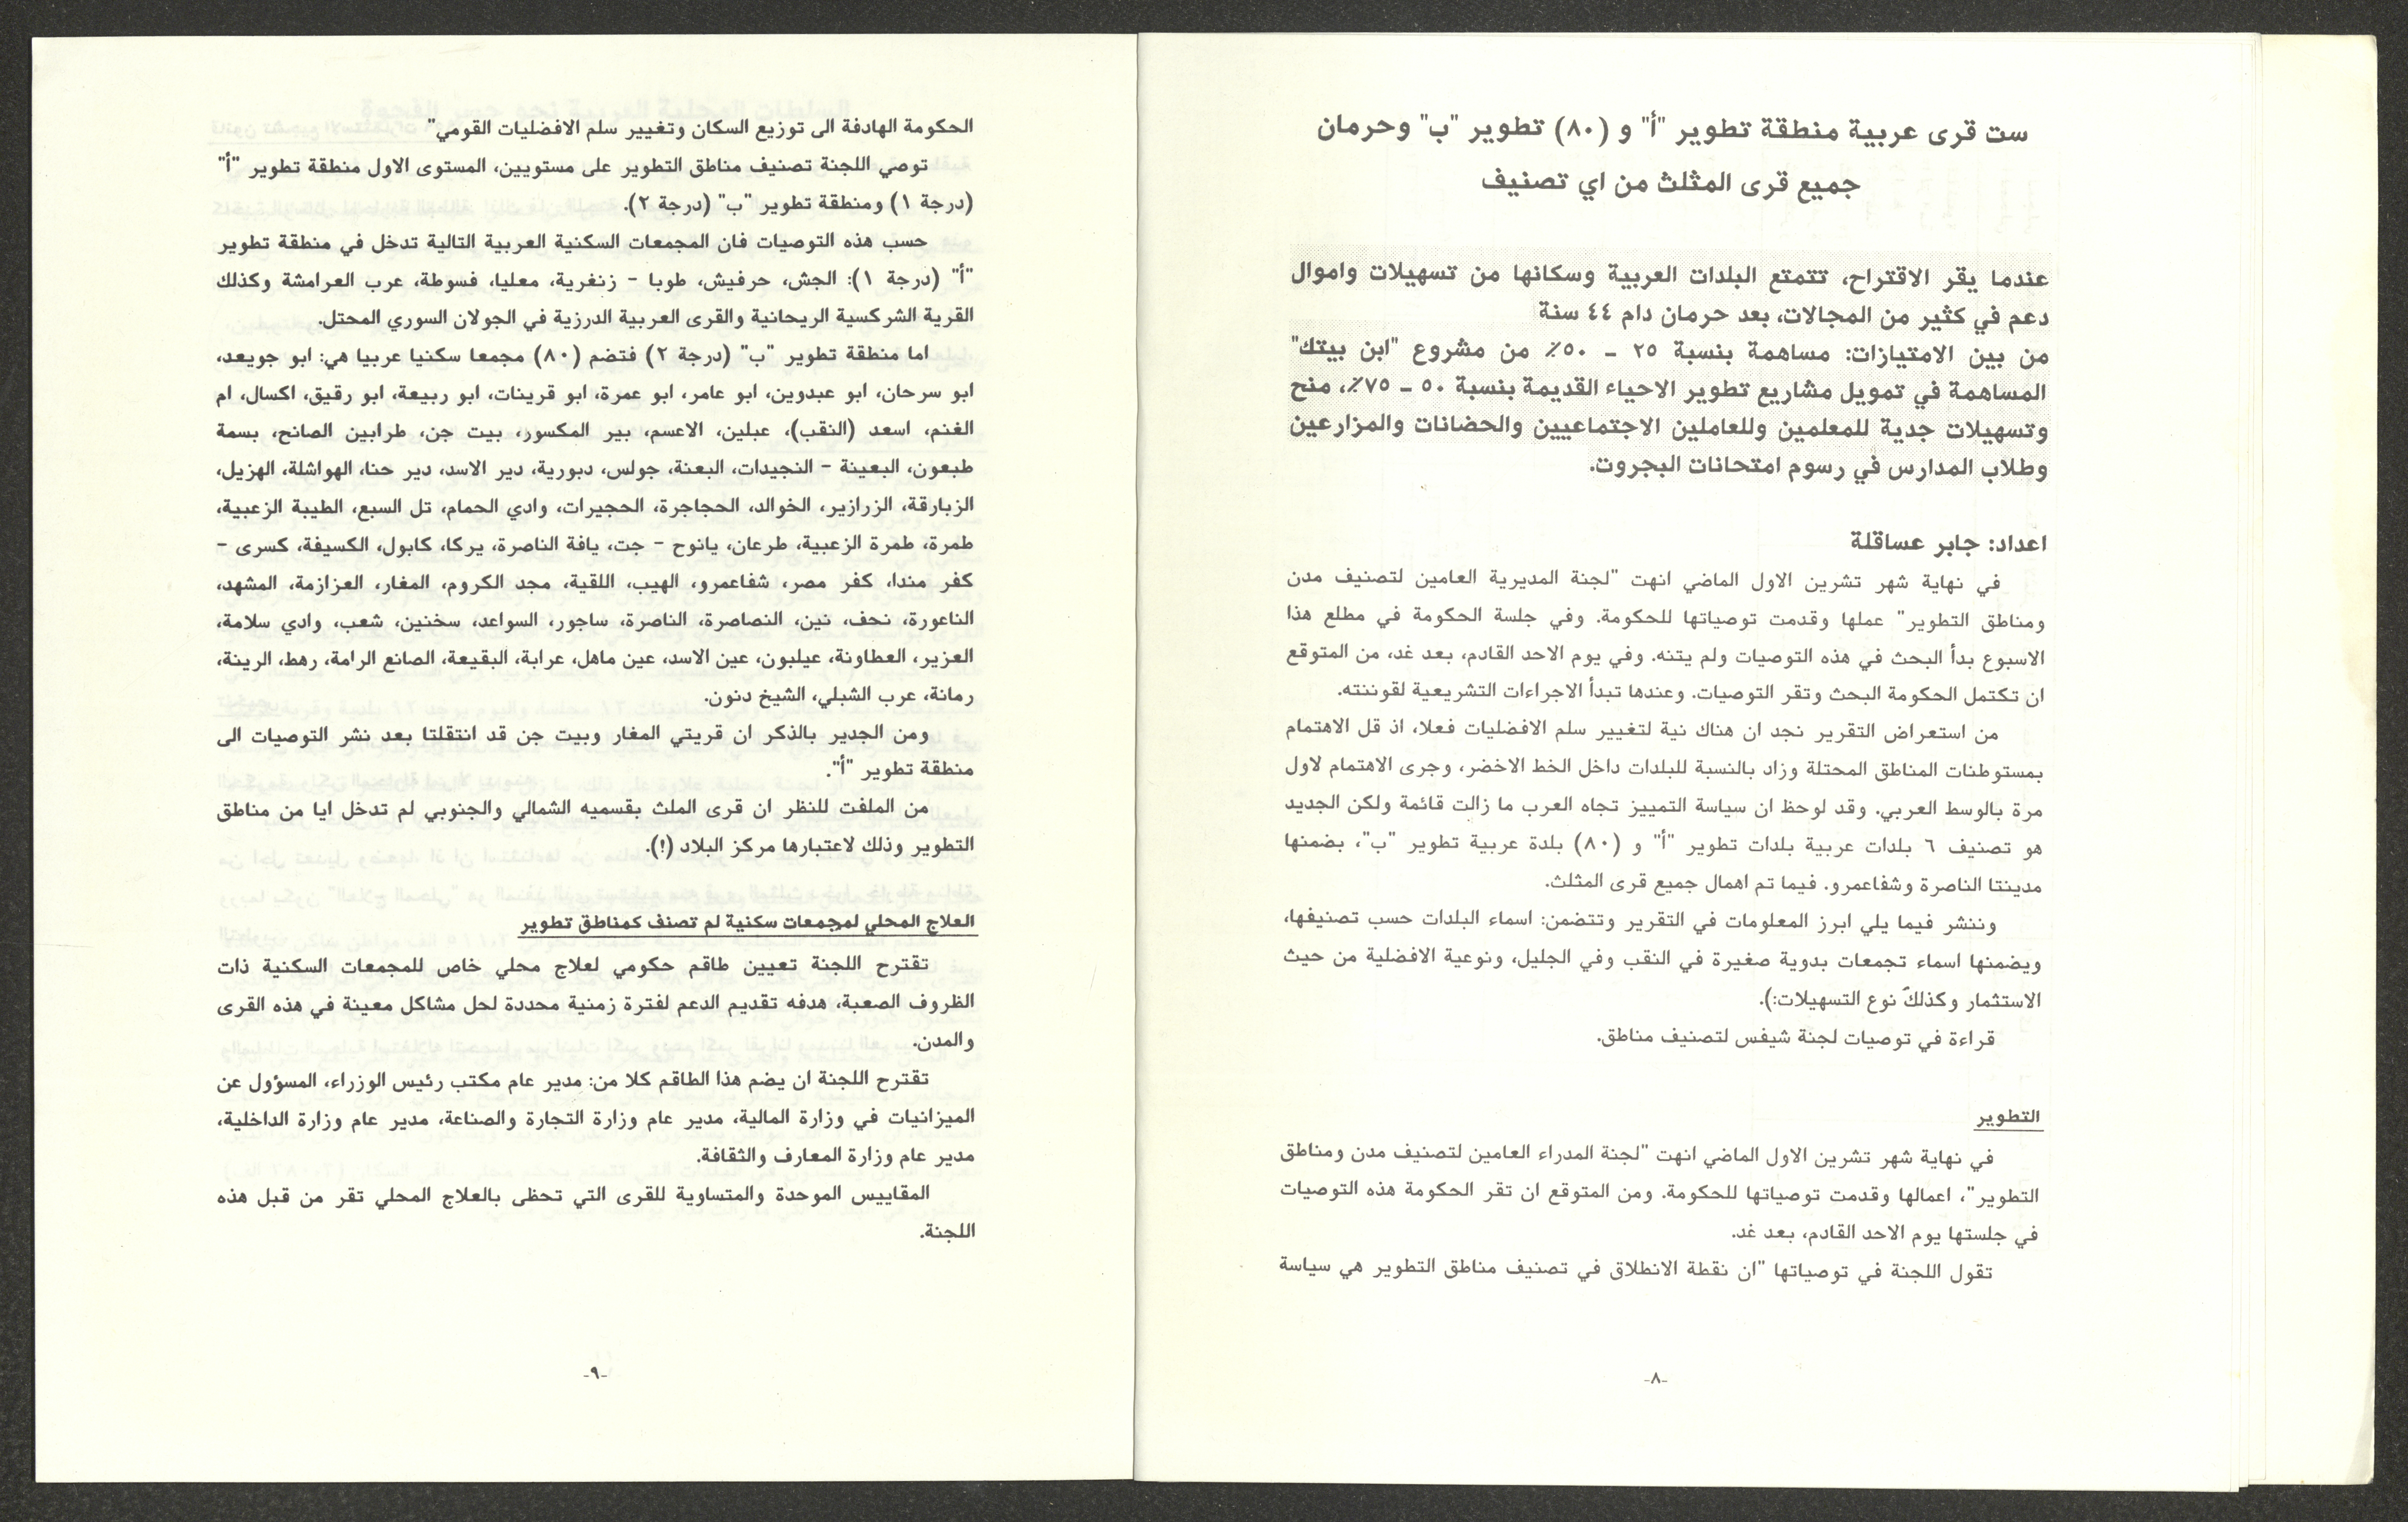 ست قرى عربية منطقة تطوير "أ" و (٨٠) تطوير "ب" وحرمان
جميع قرى المثلث من اي تصنيف
عندما يقر الاقتراح، تتمتع البلدات العربية وسكانها من تسهيلات واموال
دعم في كثير من المجالات، بعد حرمان دام ٤٤ سنة
من بين الامتيازات: مساهمة بنسبة ٢٥ ـ ٥٠٪ من مشروع "ابن بيتك"
المساهمة في تمويل مشاريع تطوير الاحياء القديمة بنسبة ٥٠ ـ ٧٥٪، منح
وتسهيلات جدية للمعلمين وللعاملين الاجتماعيين والحضانات والمزارعين
وطلاب المدارس في رسوم امتحانات البجروت.
اعداد: جابر عساقلة
في نهاية شهر تشرين الاول الماضي انهت "لجنة المديرية العامين لتصنيف مدن
ومناطق التطوير" عملها وقدمت توصياتها للحكومة. وفي جلسة الحكومة في مطلع هذا
الاسبوع بدأ البحث في هذه التوصيات ولم يتنه. وفي يوم الاحد القادم، بعد غد، من المتوقع
ان تكتمل الحكومة البحث وتقر التوصيات. وعندها تبدأ الاجراءات التشريعية لقوننته.
من استعراض التقرير نجد ان هناك نية لتغيير سلم الافضليات فعلا، اذ قل الاهتمام
بمستوطنات المناطق المحتلة وزاد بالنسبة للبلدات داخل الخط الاخضر، وجرى الاهتمام لاول
مرة بالوسط العربي. وقد لوحظ ان سياسة التمييز تجاه العرب ما زالت قائمة ولكن الجديد
هو تصنيف ٦ بلدات عربية بلدات تطوير "أ" و (٨٠) بلدة عربية تطوير "ب"، بضمنها
مدينتا الناصرة وشفاعمرو. فيما تم اهمال جميع قرى المثلث.
وننشر فيما يلي ابرز المعلومات في التقرير وتتضمن: اسماء البلدات حسب تصنيفها،
وبضمنها اسماء تجمعات بدوية صغيرة في النقب وفي الجليل، ونوعية الافضلية من حيث
الاستثمار وكذلك نوع التسهيلات:).
قراءة في توصيات لجنة شيفس لتصنيف مناطق.
التطوير
في نهاية شهر تشرين الاول الماضي انهت "لجنة المدراء العامين لتصنيف مدن ومناطق
التطوير"، اعمالها وقدمت توصياتها للحكومة. ومن المتوقع ان تقر الحكومة هذه التوصيات
في جلستها يوم الاحد القادم، بعد غد.
تقول اللجنة في توصياتها "ان نقطة الانطلاق في تصنيف مناطق التطوير هي سياسة
-٨-
الحكومة الهادفة الى توزيع السكان وتغيير سلم الافضليات القومي"
توصي اللجنة تصنيف مناطق التطوير على مستويين، المستوى الاول منطقة تطوير "أ"
(درجة ١) ومنطقة تطوير "ب" (درجة ٢).
حسب هذه التوصيات فان المجمعات السكنية العربية التالية تدخل في منطقة تطوير
"أ" (درجة ١): الجش، حرفيش، طوبا - زنغرية، معليا، فسوطة، عرب العرامشة وكذلك
القرية الشركسية الريحانية والقرى العربية الدرزية في الجولان السوري المحتل.
اما منطقة تطوير "ب" (درجة ٢) فتضم (٨٠) مجمعا سكنيا عربيا هي: ابو جويعد،
ابو سرحان، ابو عبدوين، ابو عامر، ابو عمرة، ابو قرينات، ابو ربيعة، ابو رقيق، اكسال، ام
الغنم، اسعد (النقب)، عبلين، الاعسم، بير المكسور، بيت جن، طرابين الصانح، بسمة
طبعون، البعينة - النجيدات، البعنة، جولس، دبورية، دير الاسد، دير حنا، الهواشلة، الهزيل،
الزبارقة، الزرازير، الخوالد، الحجاجرة، الحجيرات، وادي الحمام، تل السبع، الطيبة الزعبية،
طمرة، طمرة الزعبية، طرعان، يانوح - جت، يافة الناصرة، يركا، كابول، الكسيفة، كسرى -
كفر مندا، كفر مصر، شفاعمرو، الهيب، اللقية، مجد الكروم، المغار، العزازمة، المشهد،
الناعورة، نحف، نين، النصاصرة، الناصرة، ساجور، السواعد، سخنين، شعب، وادي سلامة،
العزير، العطاونة، عيلبون، عين الاسد، عين ماهل، عرابة، البقيعة، الصانع الرامة، رهط، الرينة،
رمانة، عرب الشبلي، الشيخ دنون.
ومن الجدير بالذكر ان قريتي المغار وبيت جن قد انتقلتا بعد نشر التوصيات الى
منطقة تطوير "أ".
من الملفت للنظر ان قرى الملث بقسميه الشمالي والجنوبي لم تدخل ايا من مناطق
التطوير وذلك لاعتبارها مركز البلاد (!).
العلاج المحلي لمجمعات سكنية لم تصنف كمناطق تطوير
تقترح اللجنة تعيين طاقم حكومي لعلاج محلي خاص للمجمعات السكنية ذات
الظروف الصعبة، هدفه تقديم الدعم لفترة زمنية محددة لحل مشاكل معينة في هذه القرى
والمدن.
تقترح اللجنة ان يضم هذا الطاقم كلا من: مدير عام مكتب رئيس الوزراء، المسؤول عن
الميزانيات في وزارة المالية، مدير عام وزارة التجارة والصناعة، مدير عام وزارة الداخلية،
مدير عام وزارة المعارف والثقافة.
المقاييس الموحدة والمتساوية للقرى التي تحظى بالعلاج المحلي تقر من قبل هذه
اللجنة.
-٩-